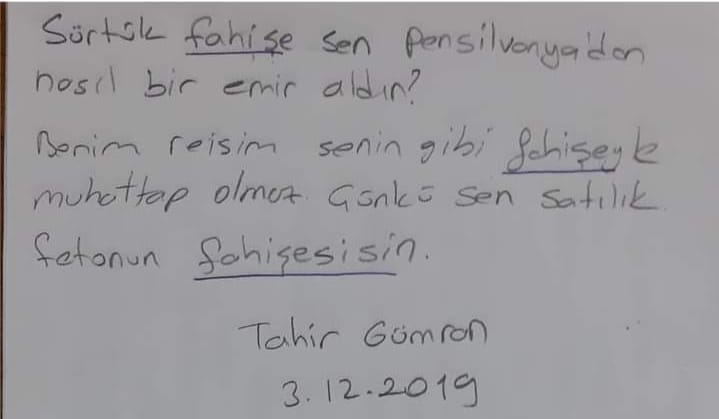 Sürtük fahişe sen Pensilvanya'dan
nasıl bir emir aldın?
Benim reisim senin gibi fahişeyle
muhattap olmaz. Çünkü sen satılık
fetonun fahişesisin.
Tahir Gümron
3.12.2019